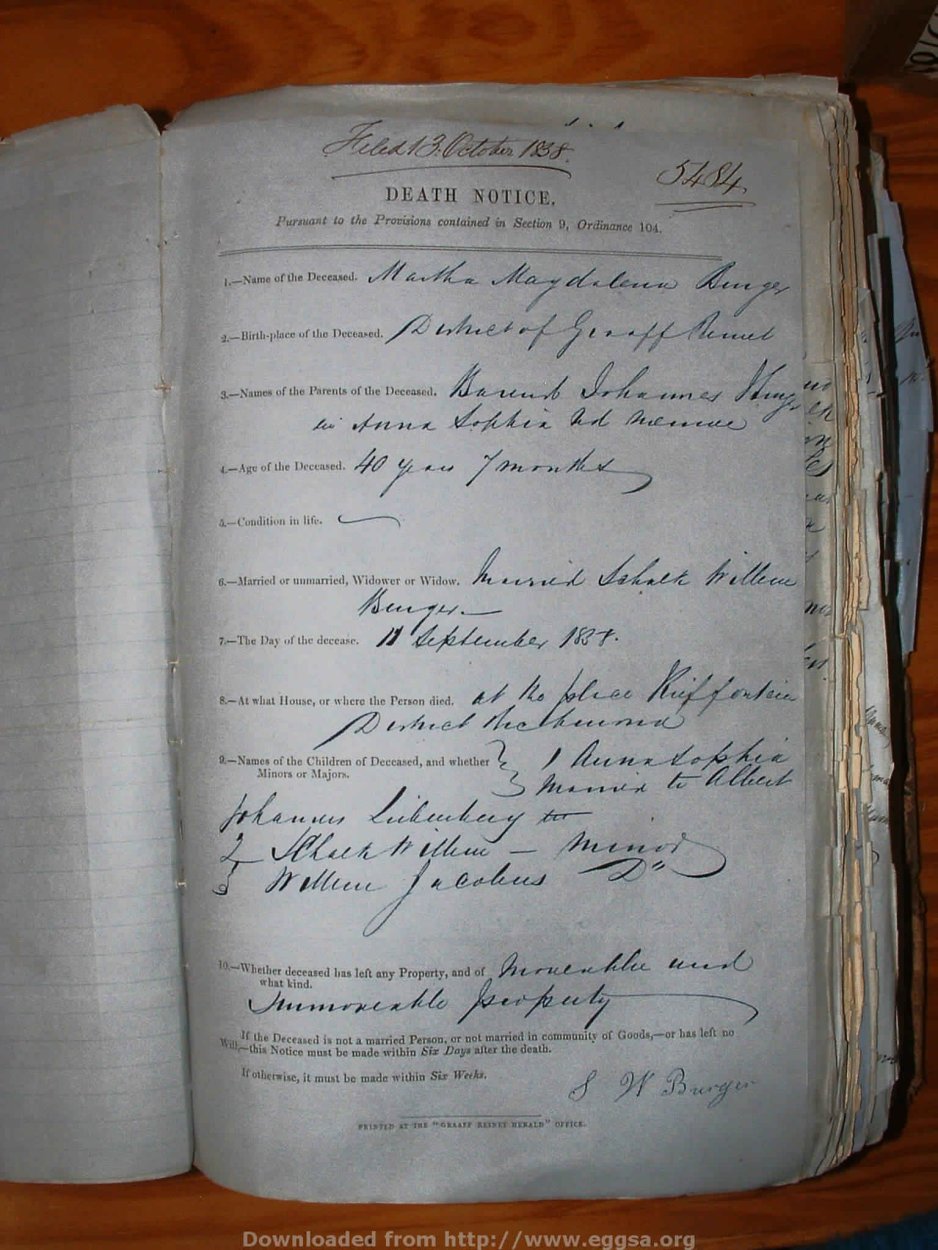 Filed 13. October 1858.
5484
DEATH NOTICE,
Pursuant to the Provisions contained in Section 9, Ordinance 104.
1.—Name of the Deceased. Martha Magdalena Burger
2.—Birth-place of the Deceased. District of Graaff Reinet
3.—Names of the Parents of the Deceased. Barend Johannes Burger
en Anna Sophia
4.—Age of the Deceased. 40 years 7 months
5.—Condition in life.
6.—Married or unmarried, Widower or Widow. Married Schalk Willem
Burger.—
7.—The Day of the decease. 11 September 1858.
8.—At what House, or where the Person died. at the place Rietfontein
District Richmond
9.—Names of the Children of Deceased, and whether 1 Anna Sophia
Minors or Majors. Married to Albert
Johannes Liebenberg
2 Schalk Willem — Minor
3 Willem Jacobus D"
10.—Whether deceased has left any Property, and of Moveable and
what kind.
Immoveable property
If the Deceased is not a married Person, or not married in community of Goods,—or has left no
Will,—this Notice must be made within Six Days after the death.
If otherwise, it must be made within Six Weeks.
S W Burger
PRINTED AT THE "GRAAFF REINET HERALD" OFFICE.
Downloaded from http://www.eggsa.org